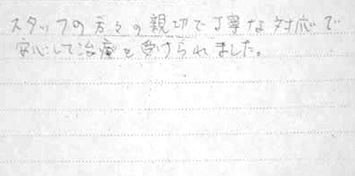 スタッフの方々の親切で丁寧な対応で
安心して治療を受けられました。